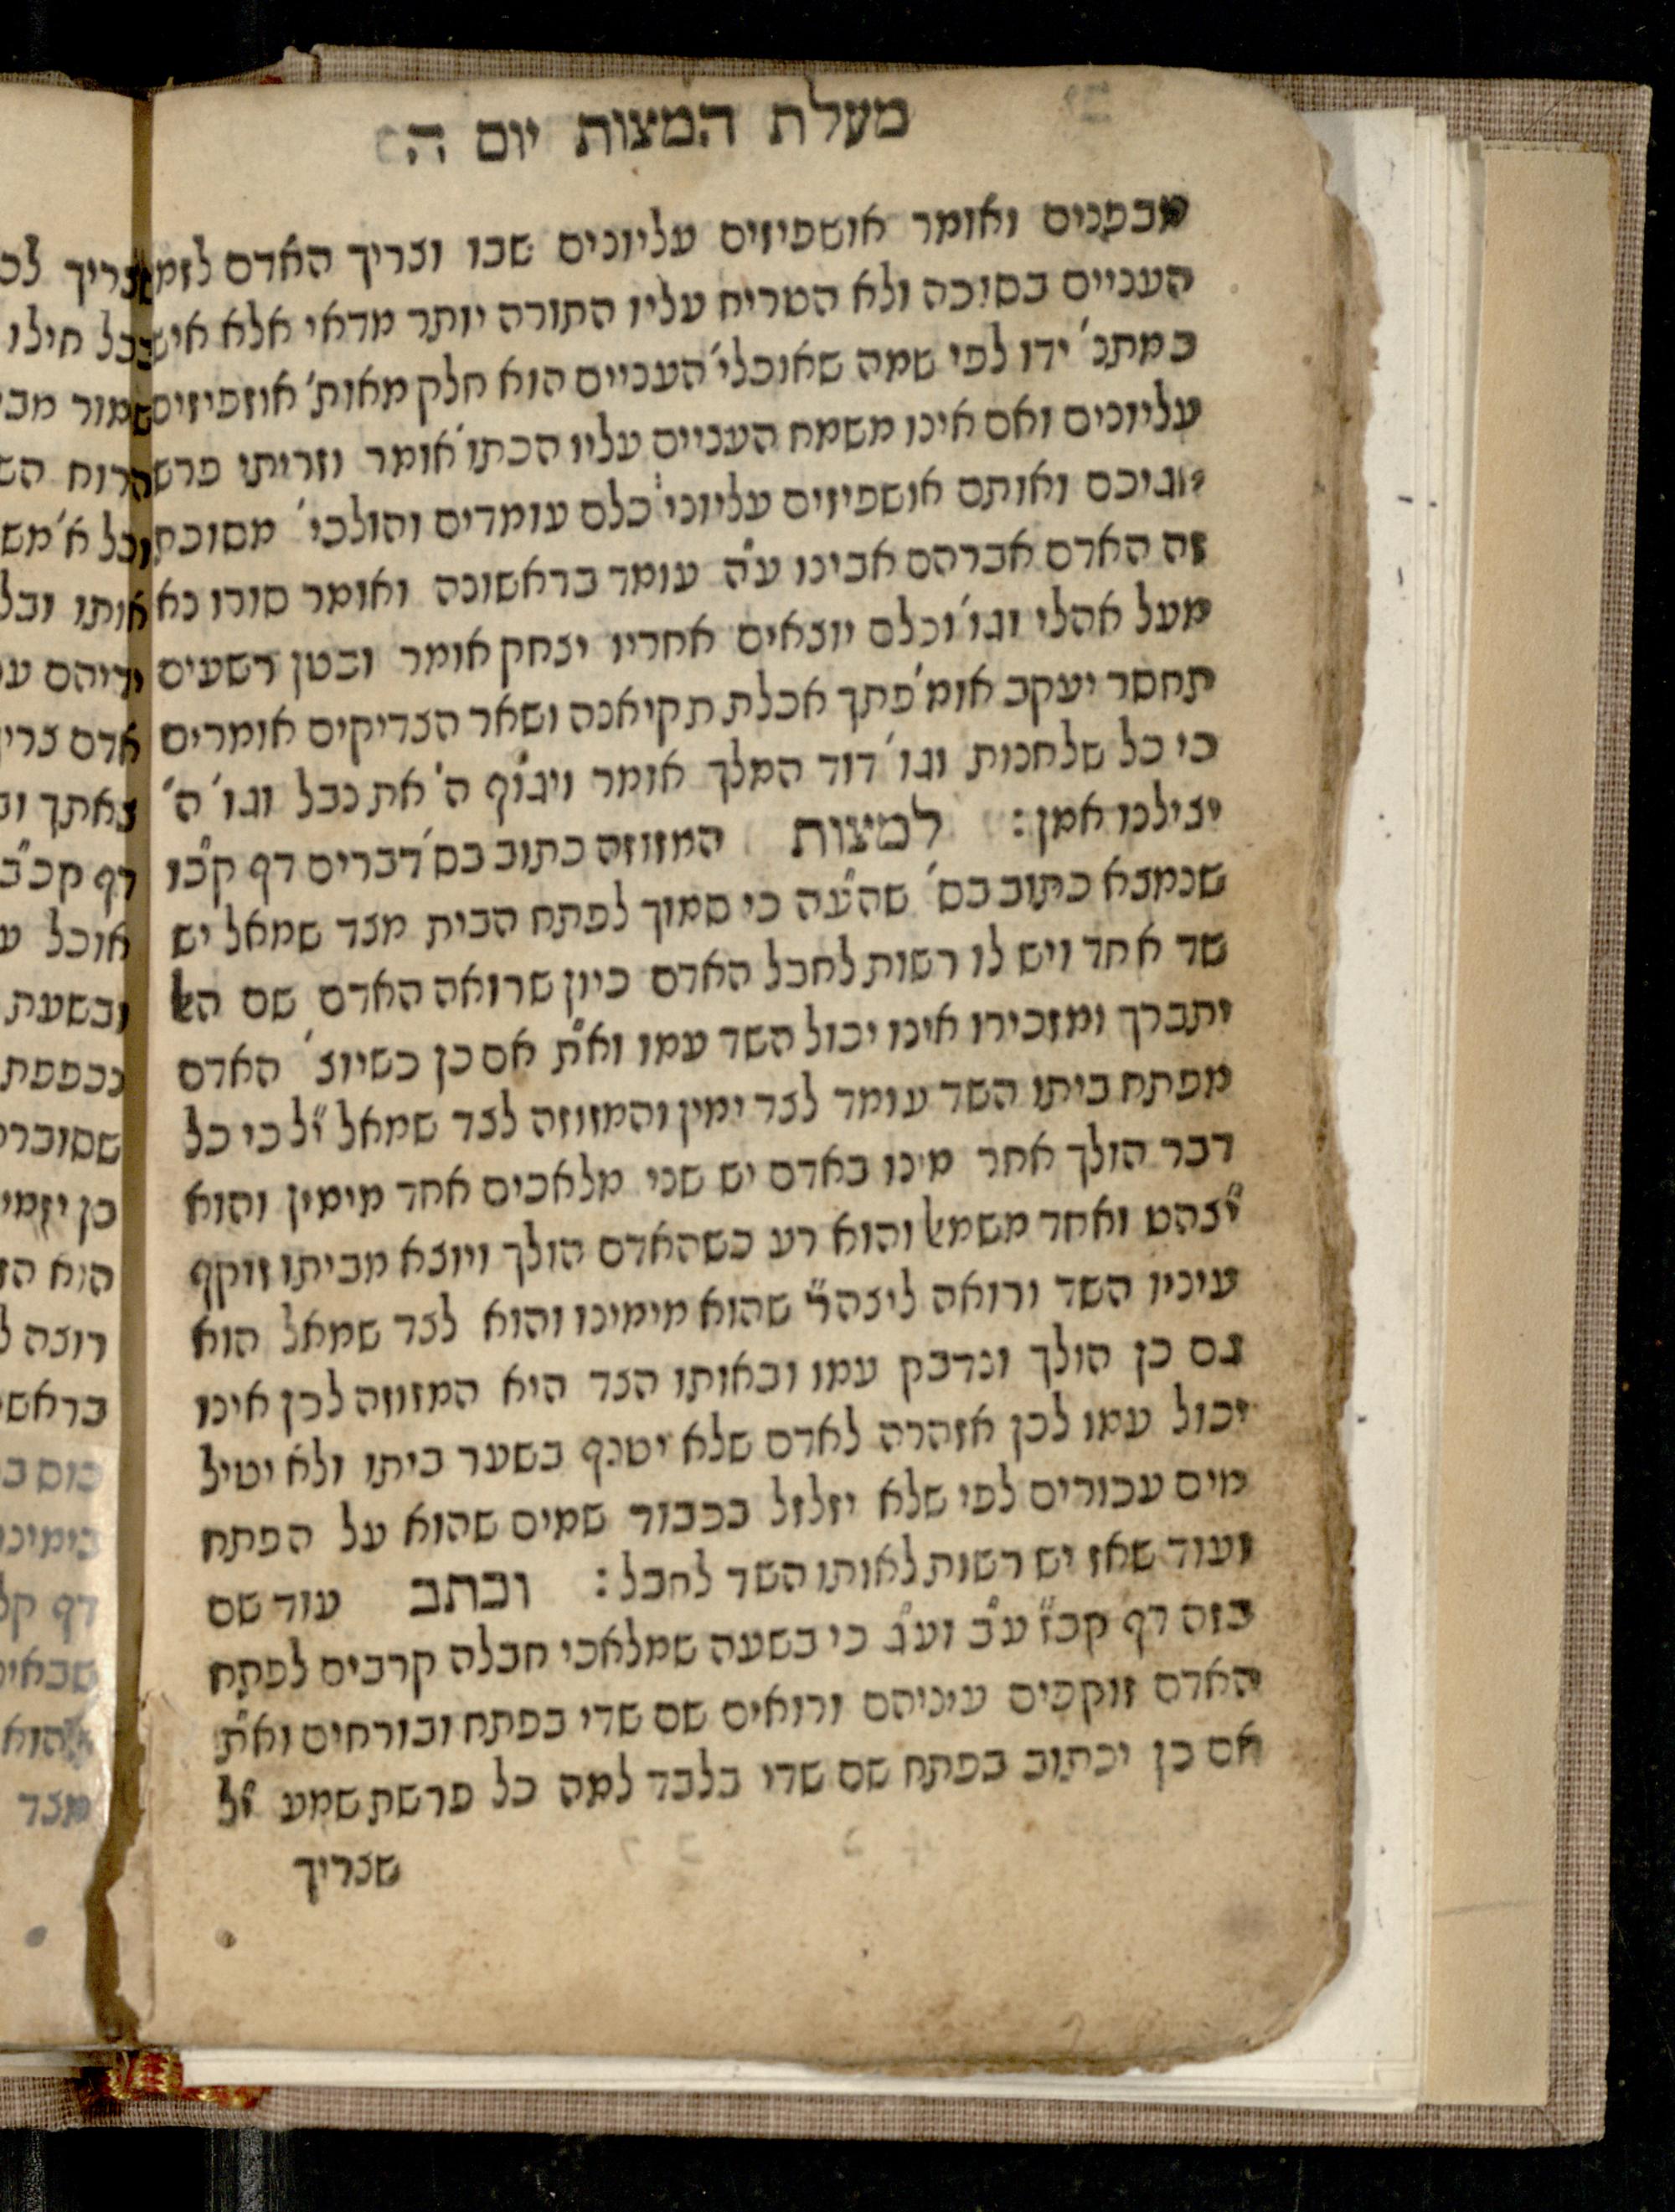 מעלת המצות יום ה
מבפנים ואומר אושפיזים עליונים שבו וצריך האדם לזמ
העניים בסוכה ולא הטריח עליו התורה יותר מדאי אלא איש
כמתנ' ידו לפי שמה שאוכלי' העניים הוא חלק מאות' אוזפיזים
עליונים ואם אינו משמח העניים עליו הכתו' אומר וזריתי פרש
חגיכם ואותם אושפיזים עליוני' כלם עומדים והולכי' מסוכת
זה האדם אברהם אבינו ע"ה עומד בראשונה ואומר סורו נא
מעל אהלי וגו' וכלם יוצאים אחריו יצחק אומר ובטן רשעים
תחסר יעקב אומ' פתך אכלת תקיאנה ושאר הצדיקים אומרים
כי כל שלחנות וגו' דוד המלך אומר ויגוף ה' את נבל וגו' ה'
יצילנו אמן : למצות המזוזה כתוב בס' דברים דף ק"כו
שנמצא כתוב בס' שה"עה כי סמוך לפתח הבית מצד שמאל יש
שד אחד ויש לו רשות לחבל האדם כיון שרואה האדם שם האל
יתברך ומזכירו אינו יכול השד עמו וא"ת אם כן כשיוצ' האדם
מפתח ביתו השד עומד לצד ימין והמזוזה לצד שמאל י"ל כי כל
דבר הולך אחר מינו באדם יש שני מלאכים אחד מימין והוא
י"צהט ואחד משמאל והוא רע כשהאדם הולך ויוצא מביתו זוקף
עיניו השד ורואה ליצה"ר שהוא מימינו והוא לצד שמאל הוא
גם כן הולך ונדבק עמו ובאותו הצד היא המזוזה לכן אינו
יכול עמו לכן אזהרה לאדם שלא יטנף בשער ביתו ולא יטיל
מים עכורים לפי שלא יזלזל בכבוד שמים שהוא על הפתח
ועוד שאז יש רשות לאותו השד לחבל : וכתב עוד שם
בזה דף קכ"ז ע"ב וע"ג כי בשעה שמלאכי חבלה קרבים לפתח
האדם זוקפים עיניהם ורואים שם שדי בפתח ובורחים וא"ת
אם כן יכתוב בפתח שם שדי בלבד למה כל פרשת שמע י"ל
שצריך